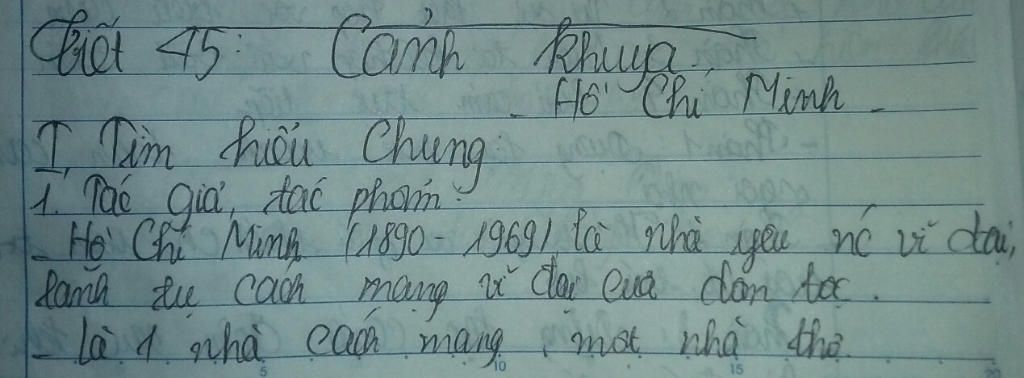 Tiết 45: Cảnh khuya
- Hồ Chí Minh -
I, Tìm hiểu Chung:
1. Tác giả, tác phẩm:
- Hồ Chí Minh (1890 - 1969) là nhà yêu nc vĩ đại,
lãnh tụ cách mạng vĩ đại của dân tộc.
- Là 1 nhà cách mạng, một nhà thơ.